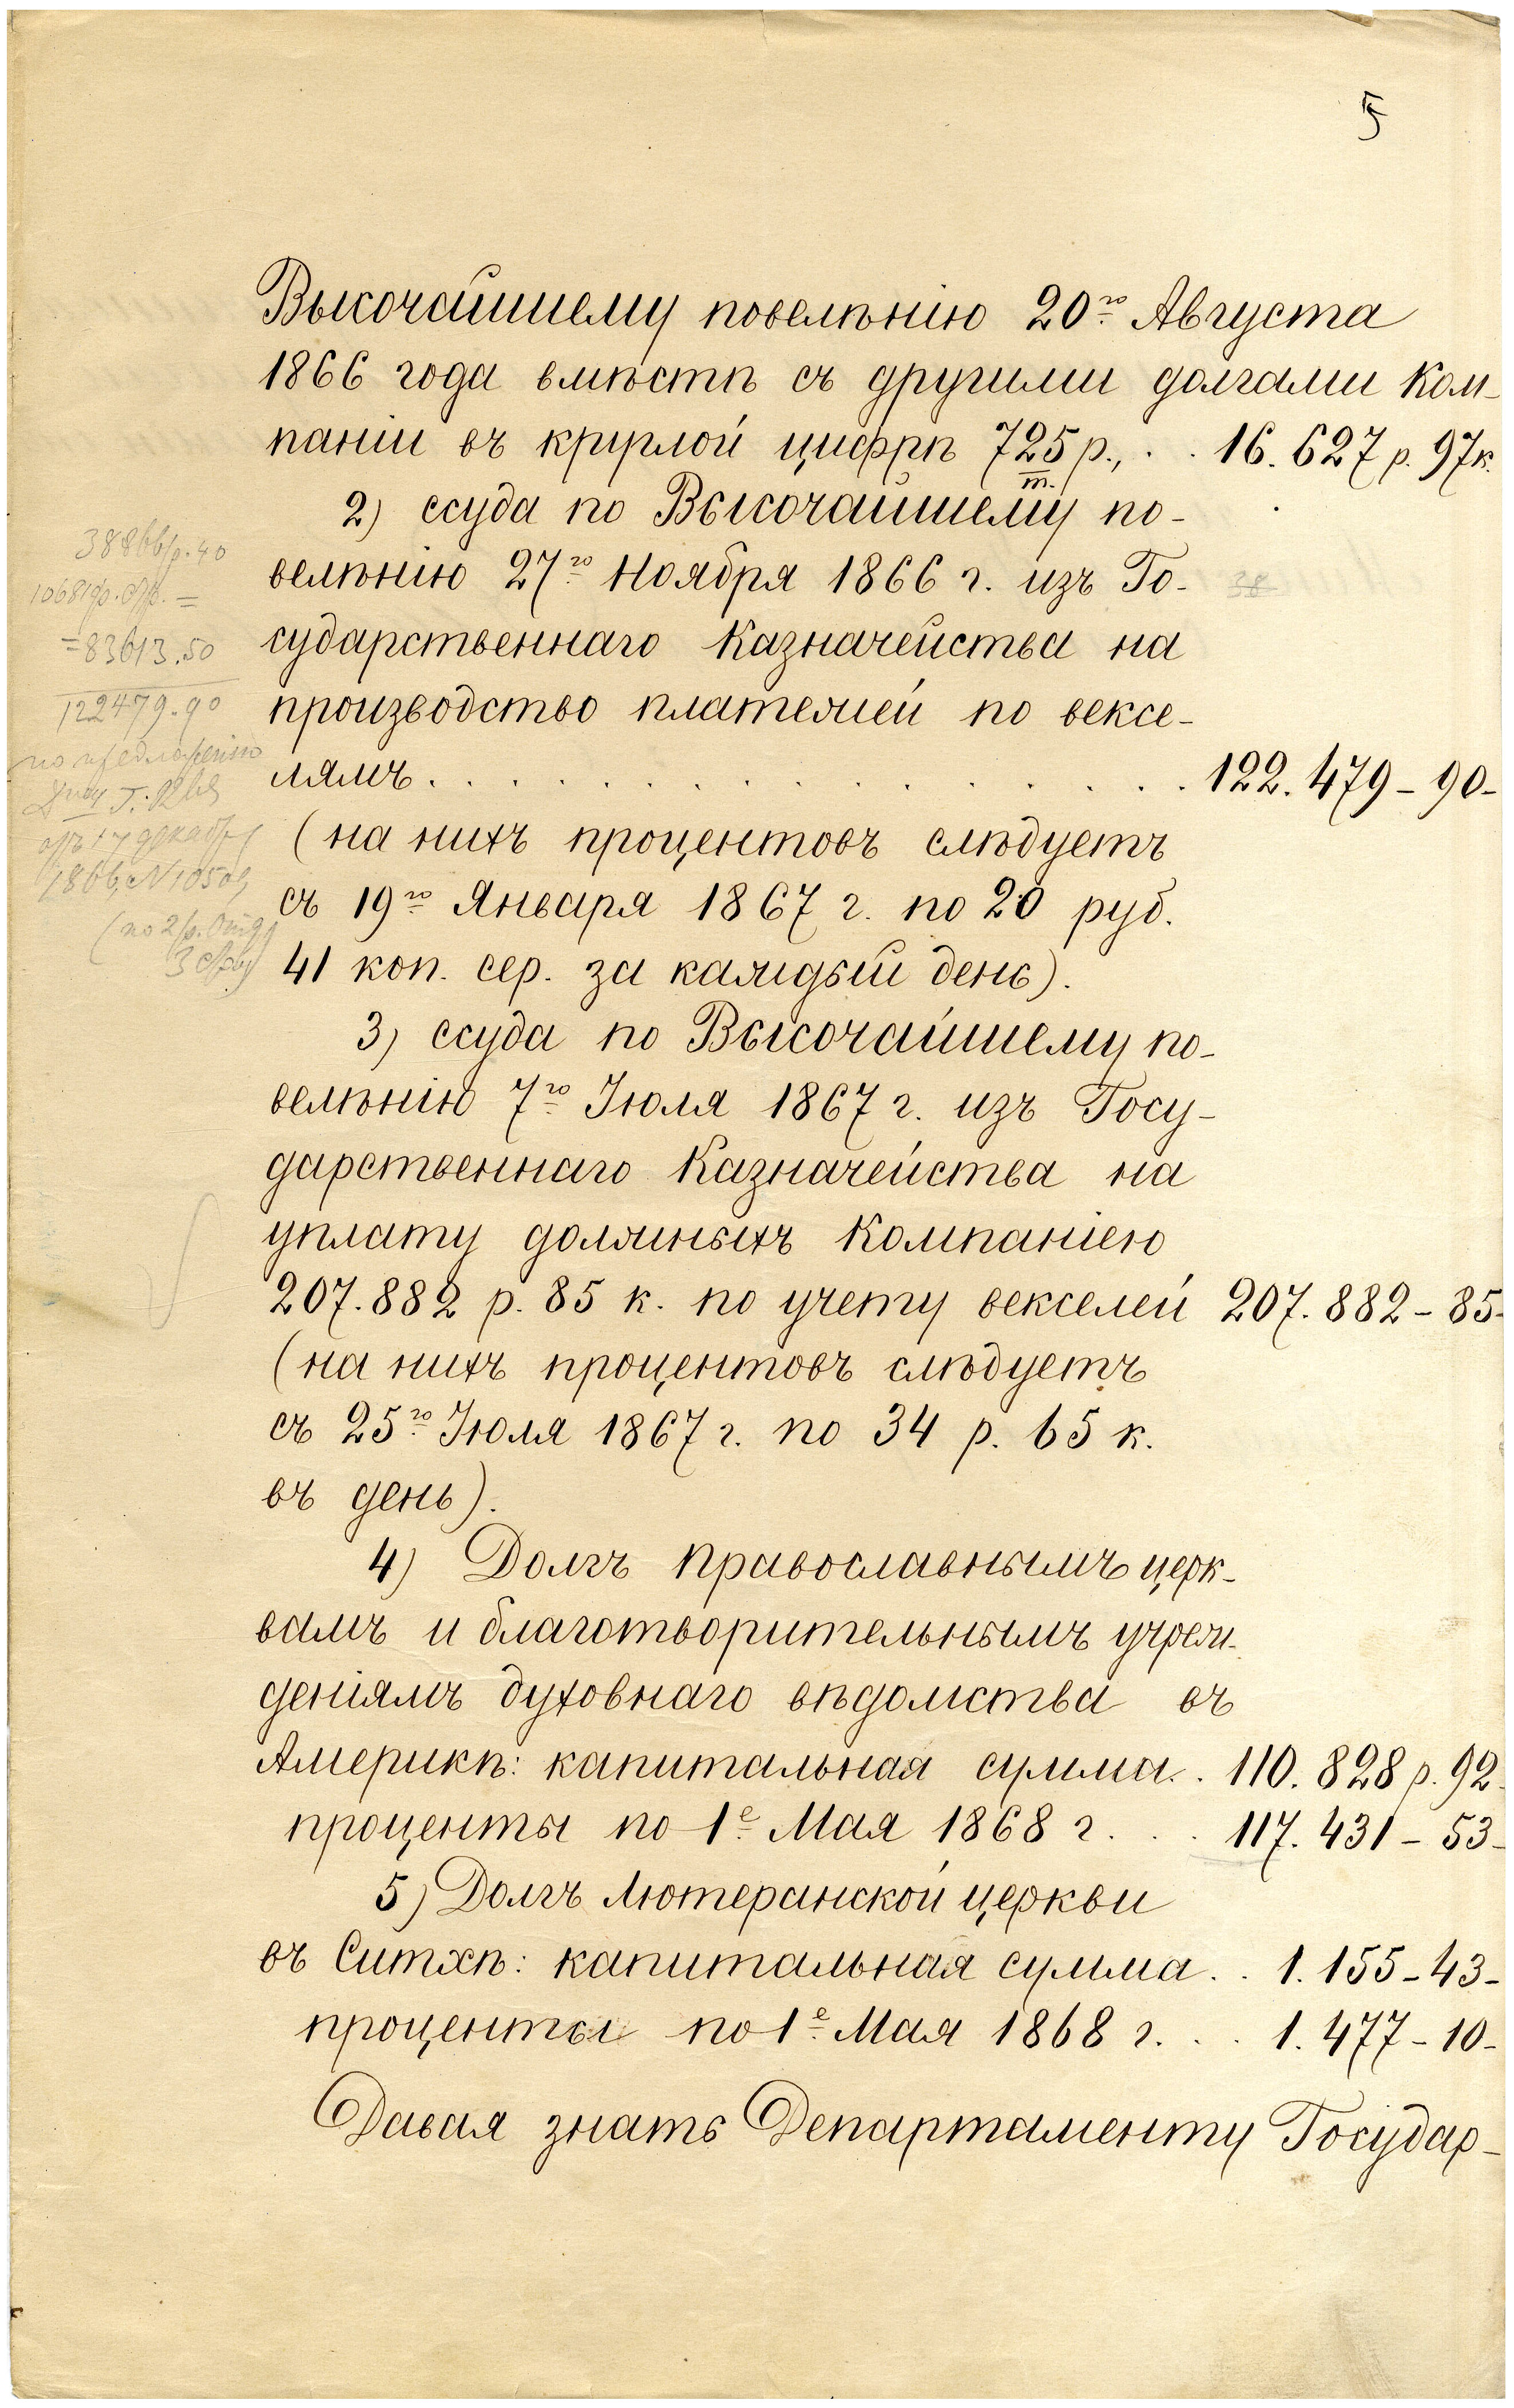 5
Высочайшему повелѣнію 20го Августа
1866 года вмѣстѣ съ другими долгами Ком-
паніи въ круглой цифрѣ 725 р., . . 16.627 р. 97 к.
т.
2) ссуда по Высочайшему по-
велѣнію 27го Ноября 1866 г. изъ Го-
38
сударственнаго Казначейства на
производство платежей по вексе-
лямъ. . . . . . . . . . . . 122.479 - 90-
(на нихъ процентовъ слѣдуетъ
съ 19го Января 1867 г. по 20 руб.
41 коп. сер. за каждый день).
3) ссуда по Высочайшему по-
велѣнію 7го Іюля 1867 г. изъ Госу-
дарственнаго Казначейства на
уплату должныхъ Компаніею
207.882 р. 85 к. по учету векселей 207.882 - 85-
(на нихъ процентовъ слѣдуетъ
съ 25го Іюля 1867 г. по 34 р. 65 к.
въ день).
4) Долгъ православнымъ церк-
вамъ и благотворительнымъ учреж-
деніямъ духовнаго вѣдомства въ
Америкѣ: капитальная сумма. . 110.828 р. 92-
проценты по 1е Мая 1868 г. . . 117.431 - 53-
5) Долгъ Лютеранской церкви
въ Ситхѣ: капитальная сумма. . 1.155 - 43-
проценты по 1е Мая 1868 г. . . 1.477 - 10-
Давая знать Департаменту Государ-
38866 р. 40
= 83613.50
122479.90
по предложенію
1866 N 10509